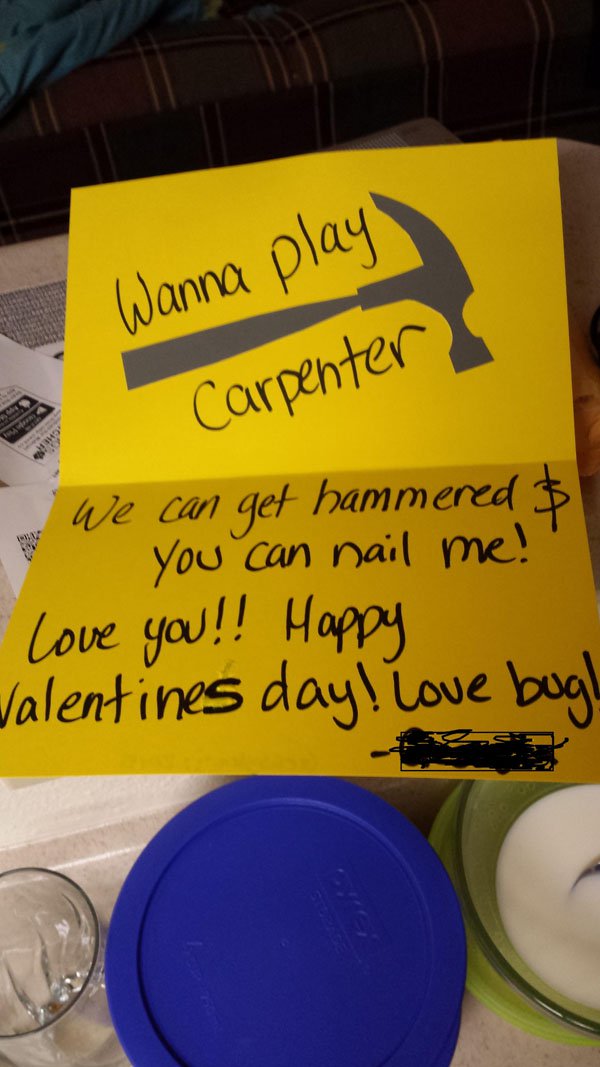 Wanna play
Carpenter
We can get hammered $
you can nail me!
Love you!! Happy
Valentines day! Love bug!